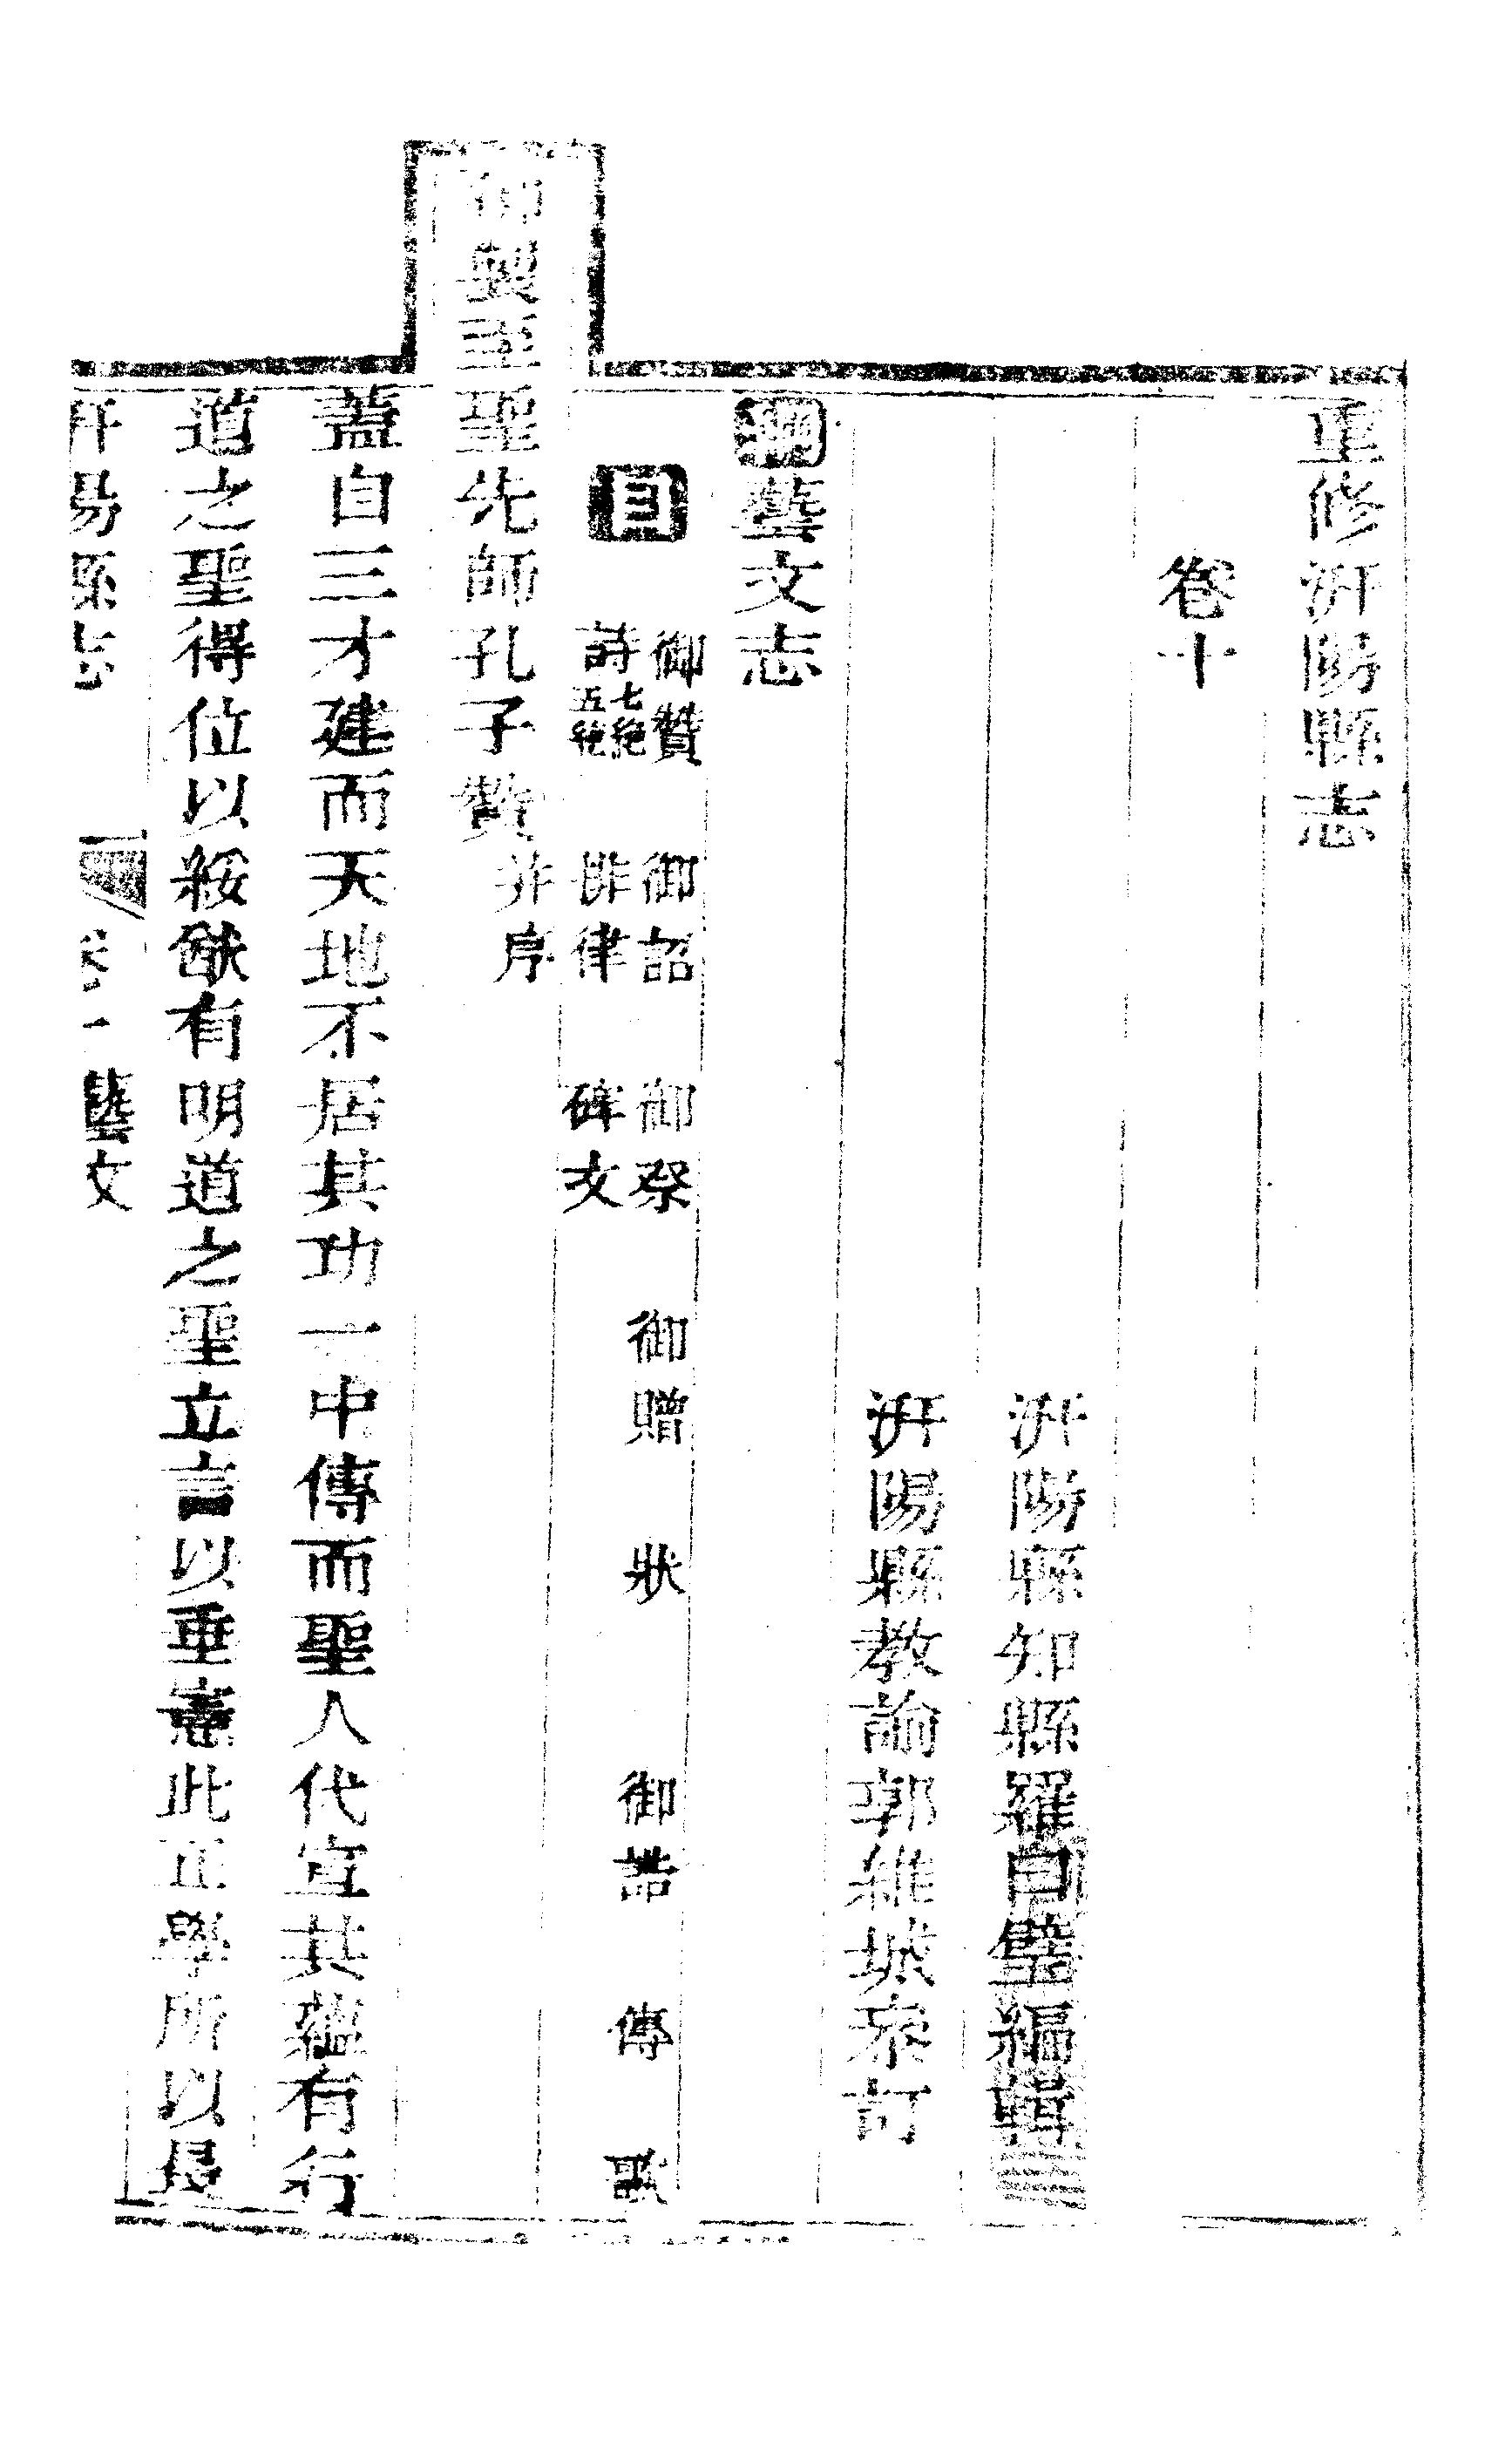 重修汧陽縣志
卷十
汧陽縣知縣羅曰璧編輯
汧陽縣教諭郭維城叅訂
綱藝文志
目 御贊 御詔 御祭 御贈 狀 御誥 傳 歌
詩 七絕 五絕 排律 碑文
御製至聖先師孔子贊 并序
蓋自三才建而天地不居其功一中傳而聖人代宣其蘊有行
道之聖得位以綏猷有明道之聖立言以垂憲此正學所以長
汧陽縣志 藝文